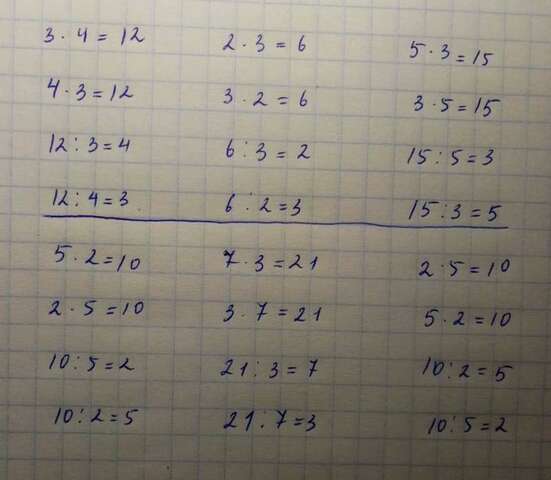 3 · 4 = 12 2 · 3 = 6 5 · 3 = 15
4 · 3 = 12 3 · 2 = 6 3 · 5 = 15
12 : 3 = 4 6 : 3 = 2 15 : 5 = 3
12 : 4 = 3 6 : 2 = 3 15 : 3 = 5
5 · 2 = 10 7 · 3 = 21 2 · 5 = 10
2 · 5 = 10 3 · 7 = 21 5 · 2 = 10
10 : 5 = 2 21 : 3 = 7 10 : 2 = 5
10 : 2 = 5 21 : 7 = 3 10 : 5 = 2